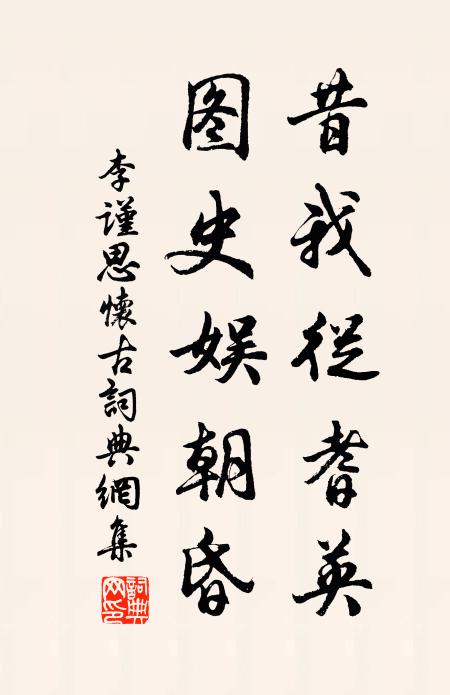 昔我従耆英
图史娱朝昏
李谨思懷古詞典網集
詞典网印